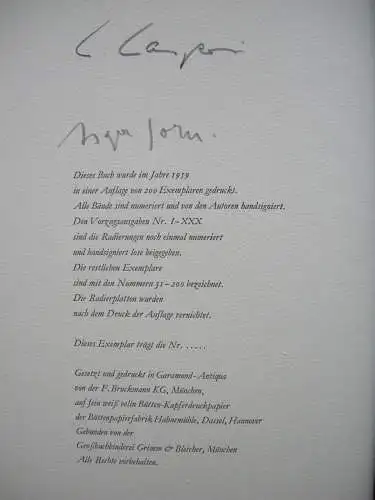 Asger Jorn.
Dieses Buch wurde im Jahre 1959
in einer Auflage von 200 Exemplaren gedruckt.
Alle Bände sind numeriert und von den Autoren handsigniert.
Den Vorzugsausgaben Nr. I–XXX
sind die Radierungen noch einmal numeriert
und handsigniert lose beigegeben.
Die restlichen Exemplare
sind mit den Nummern 31–200 bezeichnet.
Die Radierplatten wurden
nach dem Druck der Auflage vernichtet.
Dieses Exemplar trägt die Nr. .....
Gesetzt und gedruckt in Garamond-Antiqua
von der F. Bruckmann KG, München,
auf fein weiß velin Bütten-Kupferdruckpapier
der Büttenpapierfabrik Hahnemühle, Dassel, Hannover
Gebunden von der
Großbuchbinderei Grimm & Bleicher, München
Alle Rechte vorbehalten.